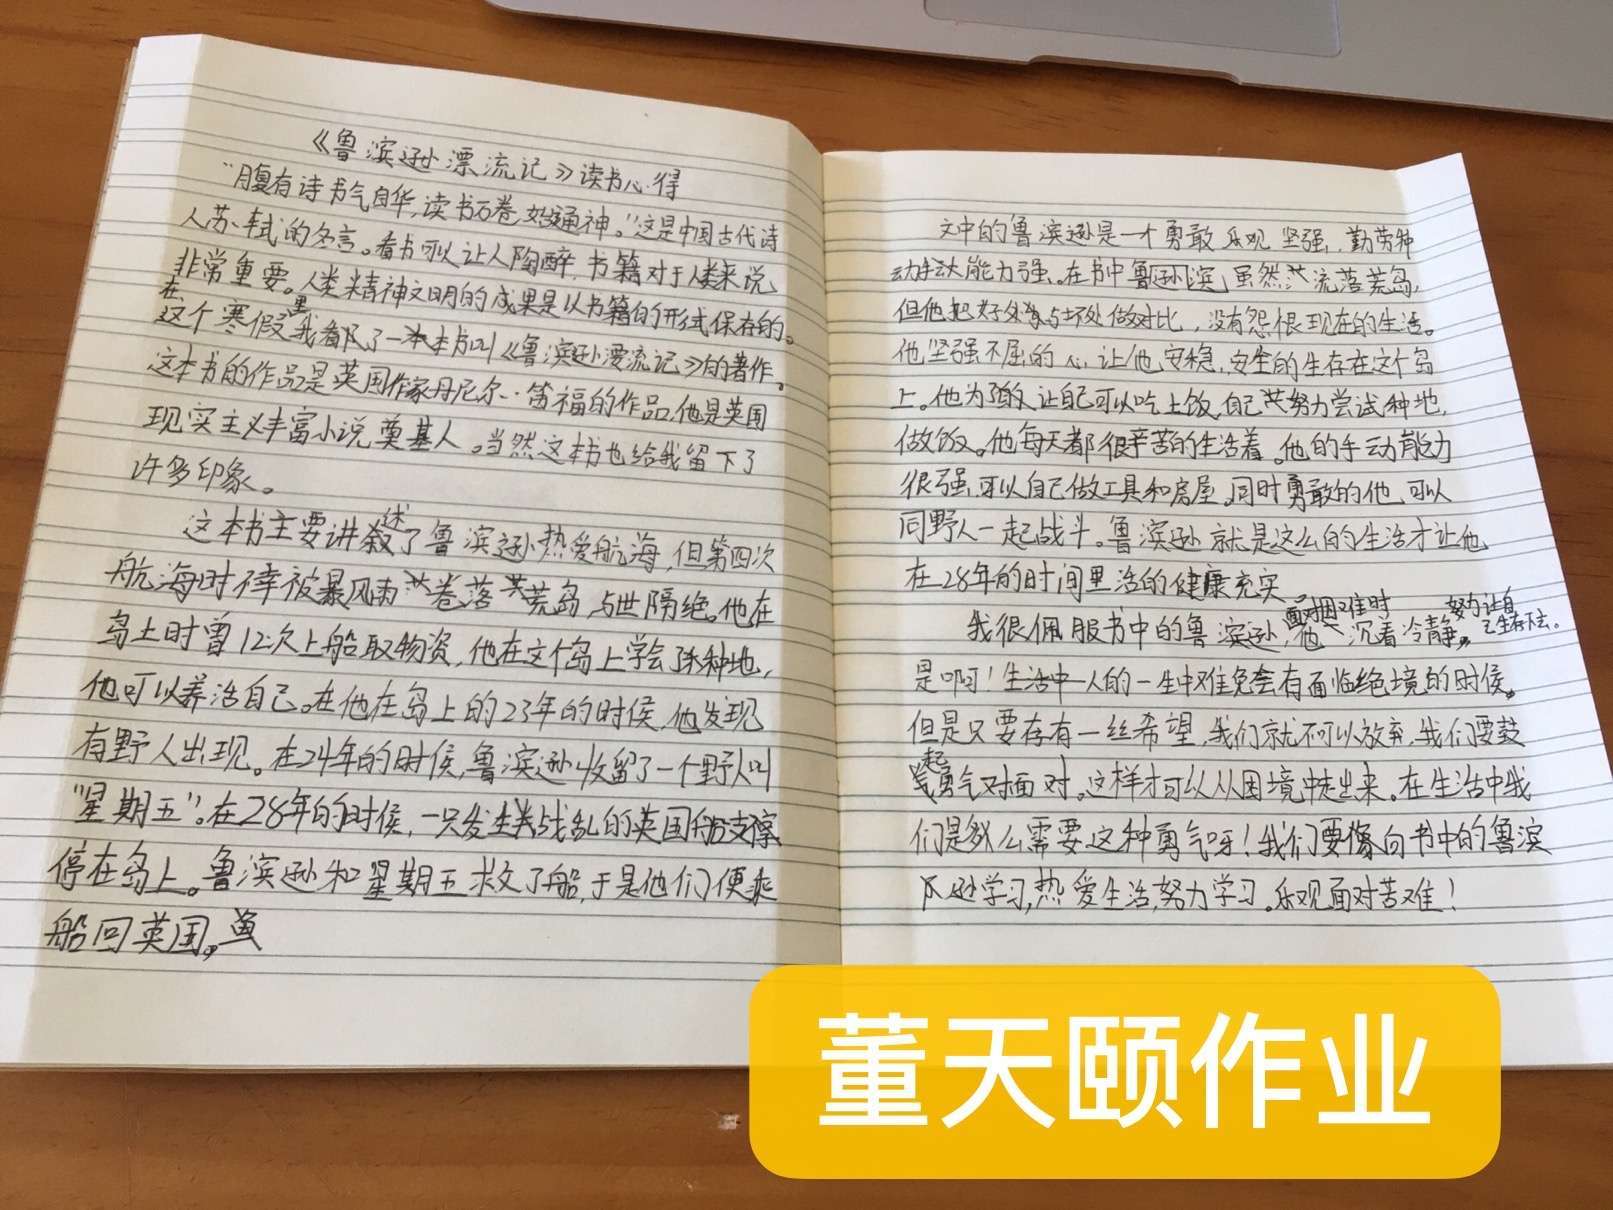 《鲁滨逊漂流记》读书心得
“腹有诗书气自华，读书万卷始通神。”这是中国古代诗
人苏轼的名言。看书可以让人陶醉，书籍对于人类来说
非常重要。人类精神文明的成果是以书籍的形式保存的。
在这个寒假里我看了一本书叫《鲁滨逊漂流记》的著作。
这本书的作品是英国作家丹尼尔·笛福的作品，他是英国
现实主义丰富小说奠基人。当然这本书也给我留下了
许多印象。
这本书主要讲述了鲁滨逊热爱航海，但第四次
航海时不幸被暴风雨卷落荒岛，与世隔绝。他在
岛上时曾12次上船取物资，他在这个岛上学会了种地，
他可以养活自己。在他在岛上的23年的时候，他发现
有野人出现。在24年的时候，鲁滨逊收留了一个野人叫
“星期五”。在28年的时候，一只发生战乱的英国船
停在岛上。鲁滨逊和星期五救了船，于是他们便乘
船回英国。
文中的鲁滨逊是一个勇敢 乐观 坚强，勤劳种
动手能力强。在书中鲁滨逊虽然流落荒岛，
但他把好处与坏处做对比，没有怨恨现在的生活。
他坚强不屈的心，让他安稳，安全的生存在这个岛
上。他为了让自己可以吃上饭，自己努力尝试种地，
做饭。他每天都很辛苦的生活着。他的手动能力
很强，可以自己做工具和房屋，同时勇敢的他，可以
同野人一起战斗。鲁滨逊就是这么的生活才让他
在28年的时间里活的健康充实
我很佩服书中的鲁滨逊，面对困难时他沉着冷静，努力让自己生存下去。
是啊！生活中一人的一生中难免会有面临绝境的时候。
但是只要存有一丝希望，我们就不可以放弃，我们要鼓
起勇气对面对。这样才可以从困境中走出来。在生活中我
们是多么需要这种勇气呀！我们要像向书中的鲁滨
逊学习，热爱生活，努力学习。乐观面对苦难！
董天颐作业